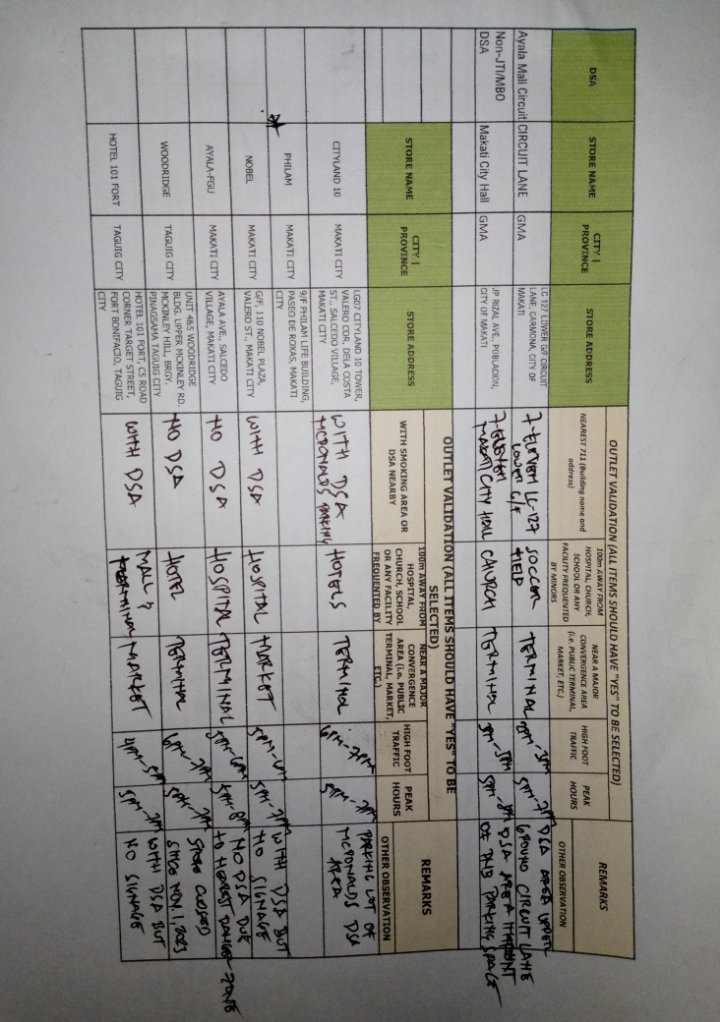 OUTLET VALIDATION (ALL ITEMS SHOULD HAVE "YES" TO BE SELECTED)
DSA
STORE NAME
CITY |
PROVINCE
STORE ADDRESS
NEAREST 711 (Building name and
address)
100m AWAY FROM
HOSPITAL, CHURCH,
SCHOOL OR ANY
FACILITY FREQUENTED
BY MINORS
NEAR A MAJOR
CONVERGENCE AREA
(i.e. PUBLIC TERMINAL,
MARKET, ETC.)
HIGH FOOT
TRAFFIC
PEAK
HOURS
REMARKS
OTHER OBSERVATION
Ayala Mall Circuit
CIRCUIT LANE
GMA
LC 127 LOWER G/F CIRCUIT
LANE, CARMONA, CITY OF
MAKATI
7-ELEVEN LC-127
LOWER G/F
SOCCER
FIELD
TERMINAL
2PM-3PM
5PM-7PM
DSA AREA UPPER
GROUND CIRCUIT LANE
Non-JTI/MBO
DSA
Makati City Hall
GMA
JP RIZAL AVE., POBLACION,
CITY OF MAKATI
7-ELEVEN
MAKATI CITY HALL
CHURCH
TERMINAL
3PM-5PM
5PM-8PM
DSA AREA INFRONT
OF PNB PARKING SPACE
OUTLET VALIDATION (ALL ITEMS SHOULD HAVE "YES" TO BE
SELECTED)
STORE NAME
CITY |
PROVINCE
STORE ADDRESS
WITH SMOKING AREA OR
DSA NEARBY
100m AWAY FROM
HOSPITAL,
CHURCH, SCHOOL
OR ANY FACILITY
FREQUENTED BY
NEAR A MAJOR
CONVERGENCE
AREA (i.e. PUBLIC
TERMINAL, MARKET,
ETC.)
HIGH FOOT
TRAFFIC
PEAK
HOURS
REMARKS
OTHER OBSERVATION
CITYLAND 10
MAKATI CITY
LG07 CITYLAND 10 TOWER,
VALERO COR, DELA COSTA
ST., SALCEDO VILLAGE,
MAKATI CITY
WITH DSA
MCDONALDS PARKING
HOTELS
TERMINAL
6PM-7PM
5PM-7PM
PARKING LOT OF
MCDONALDS DSA
AREA
PHILAM
MAKATI CITY
9/F PHILAM LIFE BUILDING,
PASEO DE ROXAS, MAKATI
CITY
NOBEL
MAKATI CITY
G/F, 110 NOBEL PLAZA,
VALERO ST., MAKATI CITY
WITH DSA
HOSPITAL
MARKET
5PM-6PM
5PM-7PM
WITH DSA BUT
NO SIGNAGE
AYALA-FGU
MAKATI CITY
AYALA AVE., SALCEDO
VILLAGE, MAKATI CITY
NO DSA
HOSPITAL
TERMINAL
5PM-6PM
5PM-8PM
NO DSA DUE
TO NEAREST DANGER ZONE
WOODRIDGE
TAGUIG CITY
UNIT 4&5 WOODRIDGE
BLDG. UPPER MCKINLEY RD.
MCKINLEY HILL, BRGY.
PINAGSAMA TAGUIG CITY
NO DSA
HOTEL
TERMINAL
6PM-7PM
5PM-7PM
STORE CLOSED
SINCE NOV. 1, 2023
HOTEL 101 FORT
TAGUIG CITY
HOTEL 101 FORT, C5 ROAD
CORNER TARGET STREET,
FORT BONIFACIO, TAGUIG
CITY
WITH DSA
MALL &
TERMINAL
MARKET
4PM-5PM
5PM-7PM
WITH DSA BUT
NO SIGNAGE